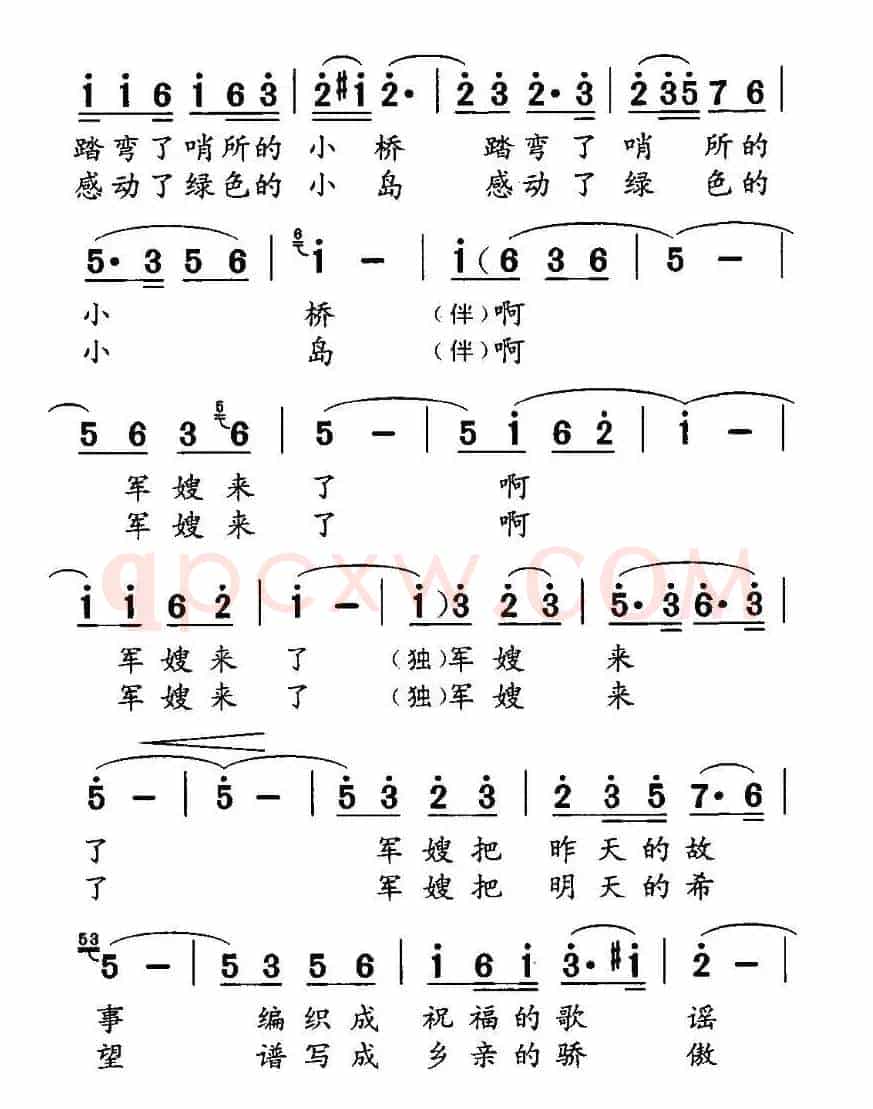 1 1 6 1 6 3 | 2 #1 2· | 2 3 2· 3 | 2 3 5 7 6 |
踏弯了哨所的小桥 踏弯了哨所的
感动了绿色的小岛 感动了绿色的
5· 3 5 6 | 6 1 － | 1 ( 6 3 6 | 5 － |
小 桥 (伴)啊
小 岛 (伴)啊
5 6 3 5 6 | 5 － | 5 1 6 2 | 1 － |
军嫂来了 啊
军嫂来了 啊
qpcxw.COM
1 1 6 2 | 1 － | 1 ) 3 2 3 | 5· 3 6· 3 |
军嫂来了 (独)军嫂来
军嫂来了 (独)军嫂来
5 － | 5 － | 5 3 2 3 | 2 3 5 7· 6 |
了 军嫂把昨天的故
了 军嫂把明天的希
53 5 － | 5 3 5 6 | 1 6 1 3· #1 | 2 － |
事 编织成祝福的歌谣
望 谱写成乡亲的骄傲